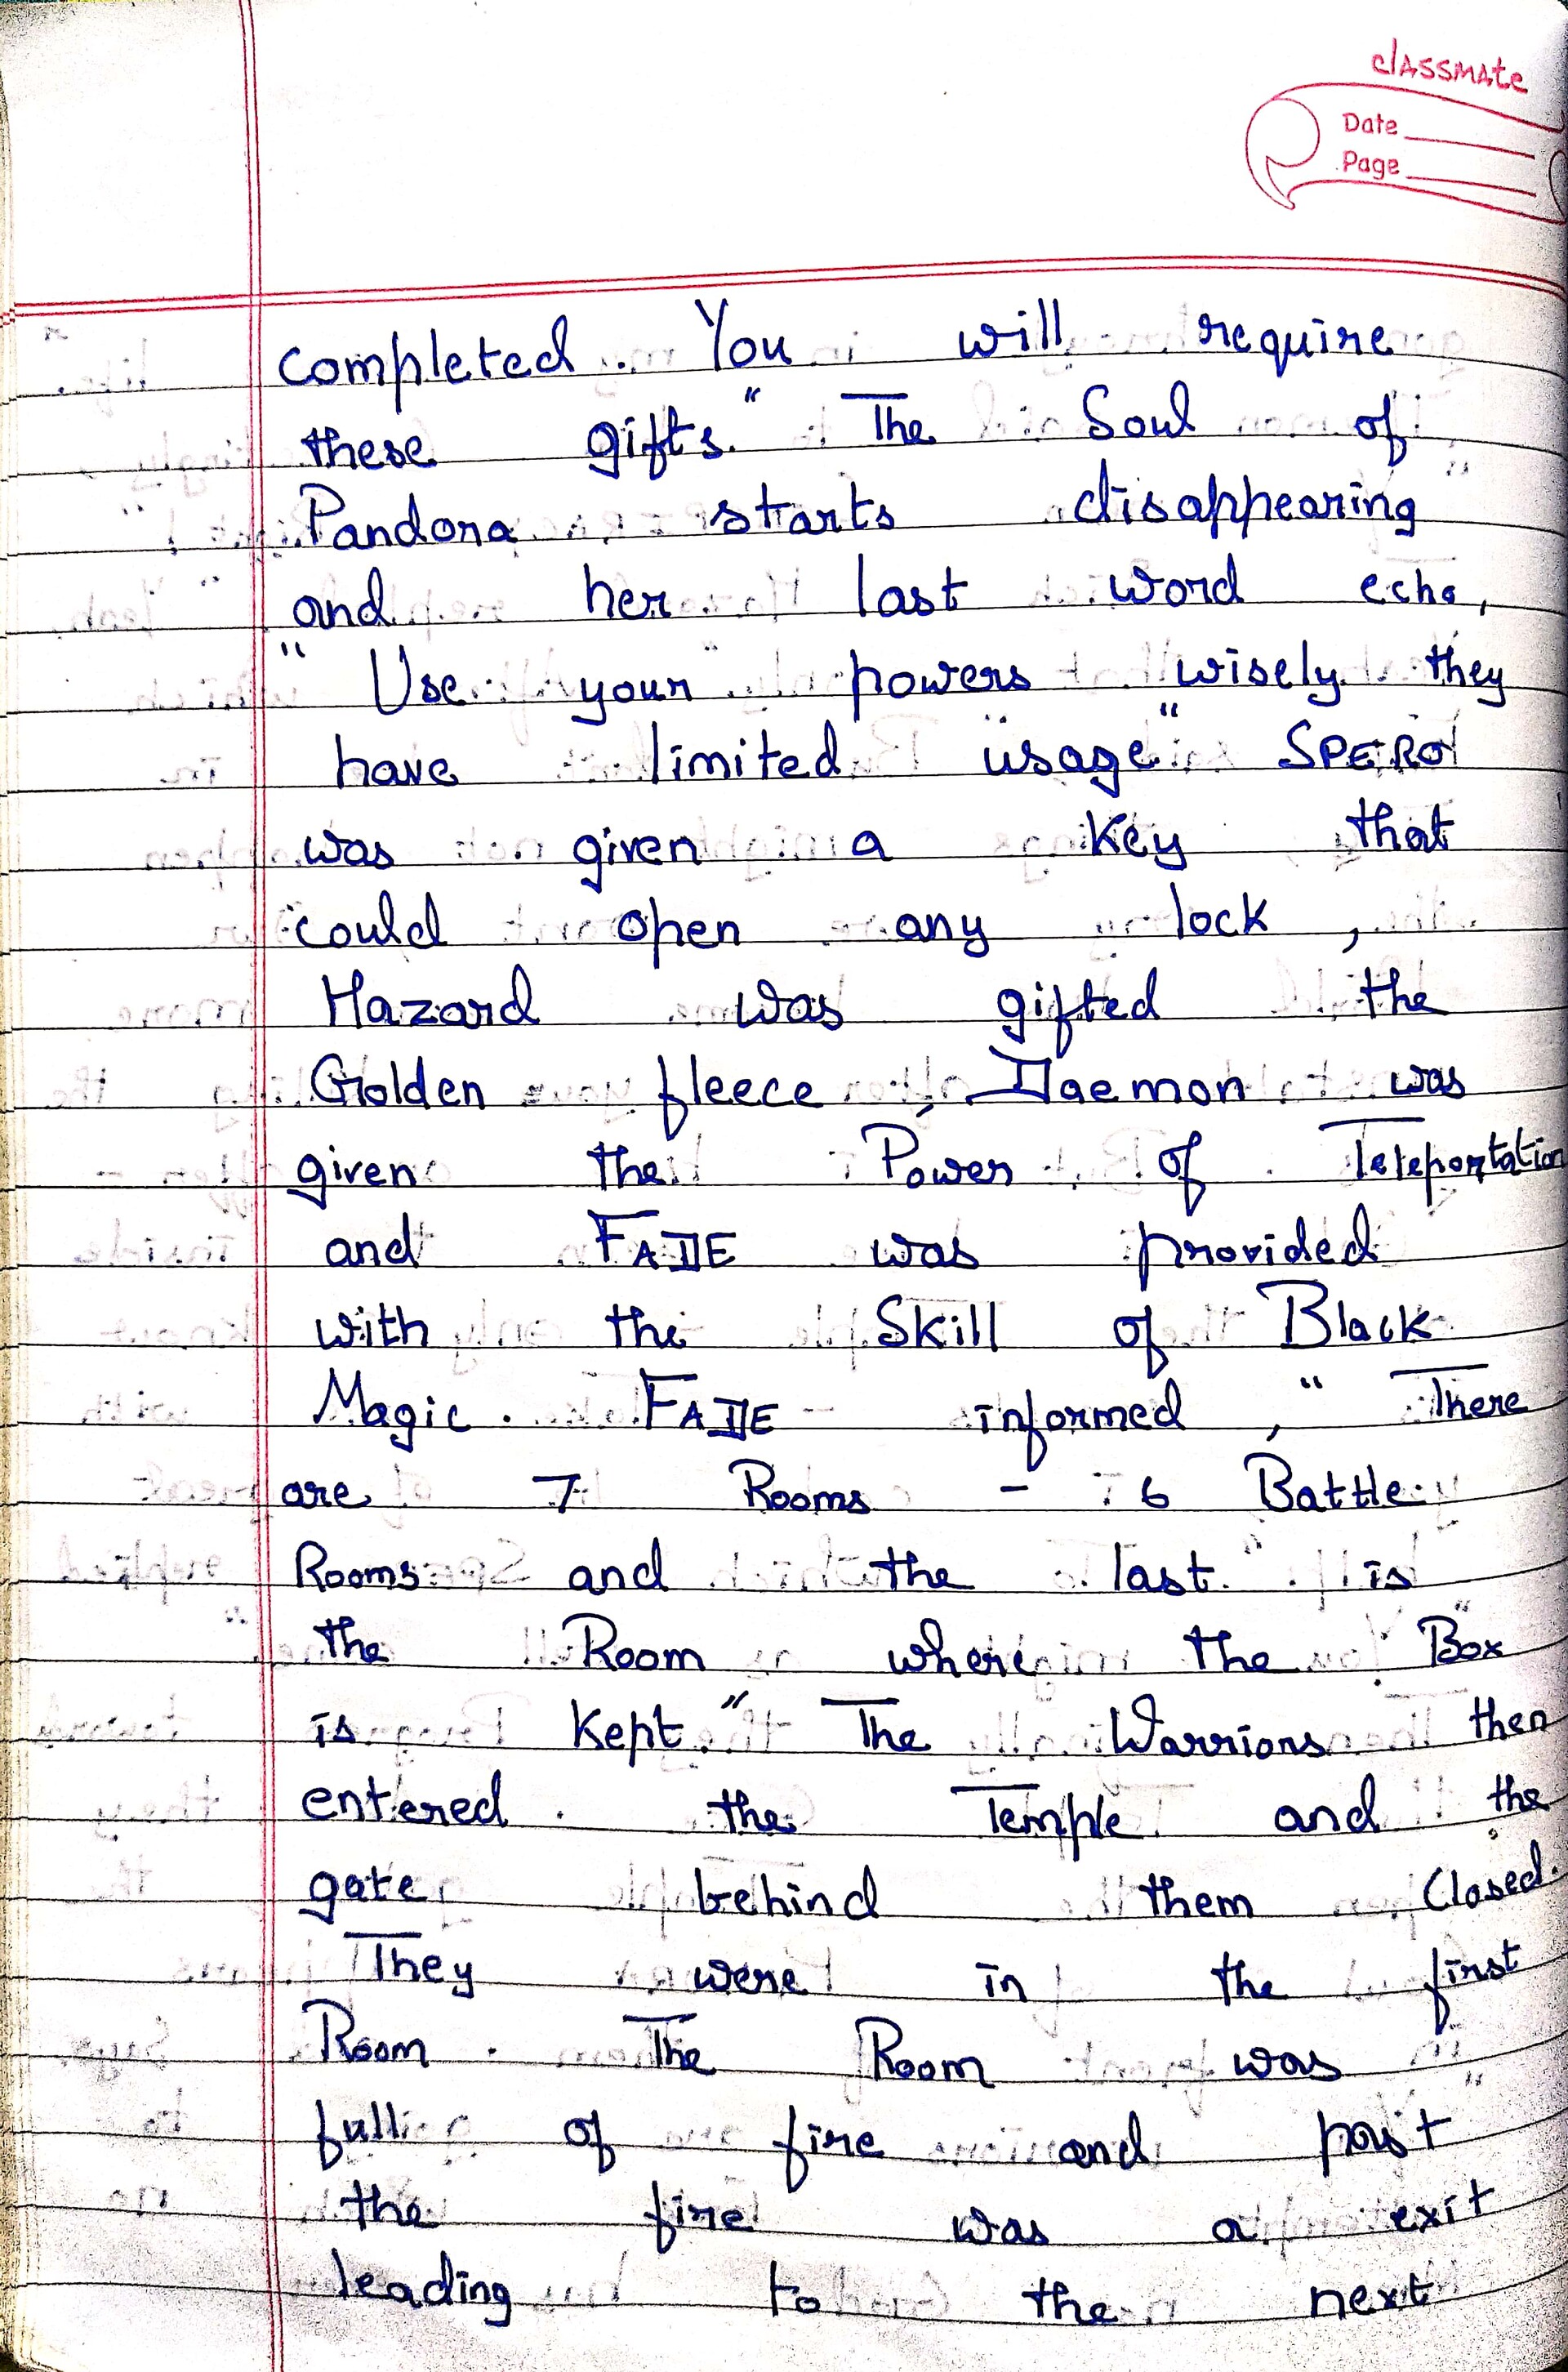 classmate
Date
Page
completed. You will require
these gifts." The Soul of
Pandora starts disappearing
and her last word echo,
"Use your powers wisely they
have limited usage" SPERO
was given a Key that
could open any lock ,
Hazard was gifted the
Golden fleece, Daemon was
given the Power of Teleportation
and FADE was provided
with the Skill of Black
Magic. FADE informed, "There
are 7 Rooms - 6 Battle
Rooms and the last is
the Room where the Box
is kept." The Warriors then
entered the Temple and the
gate behind them Closed.
They were in the first
Room. The Room was
full of fire and past
the fire was a exit
leading to the next